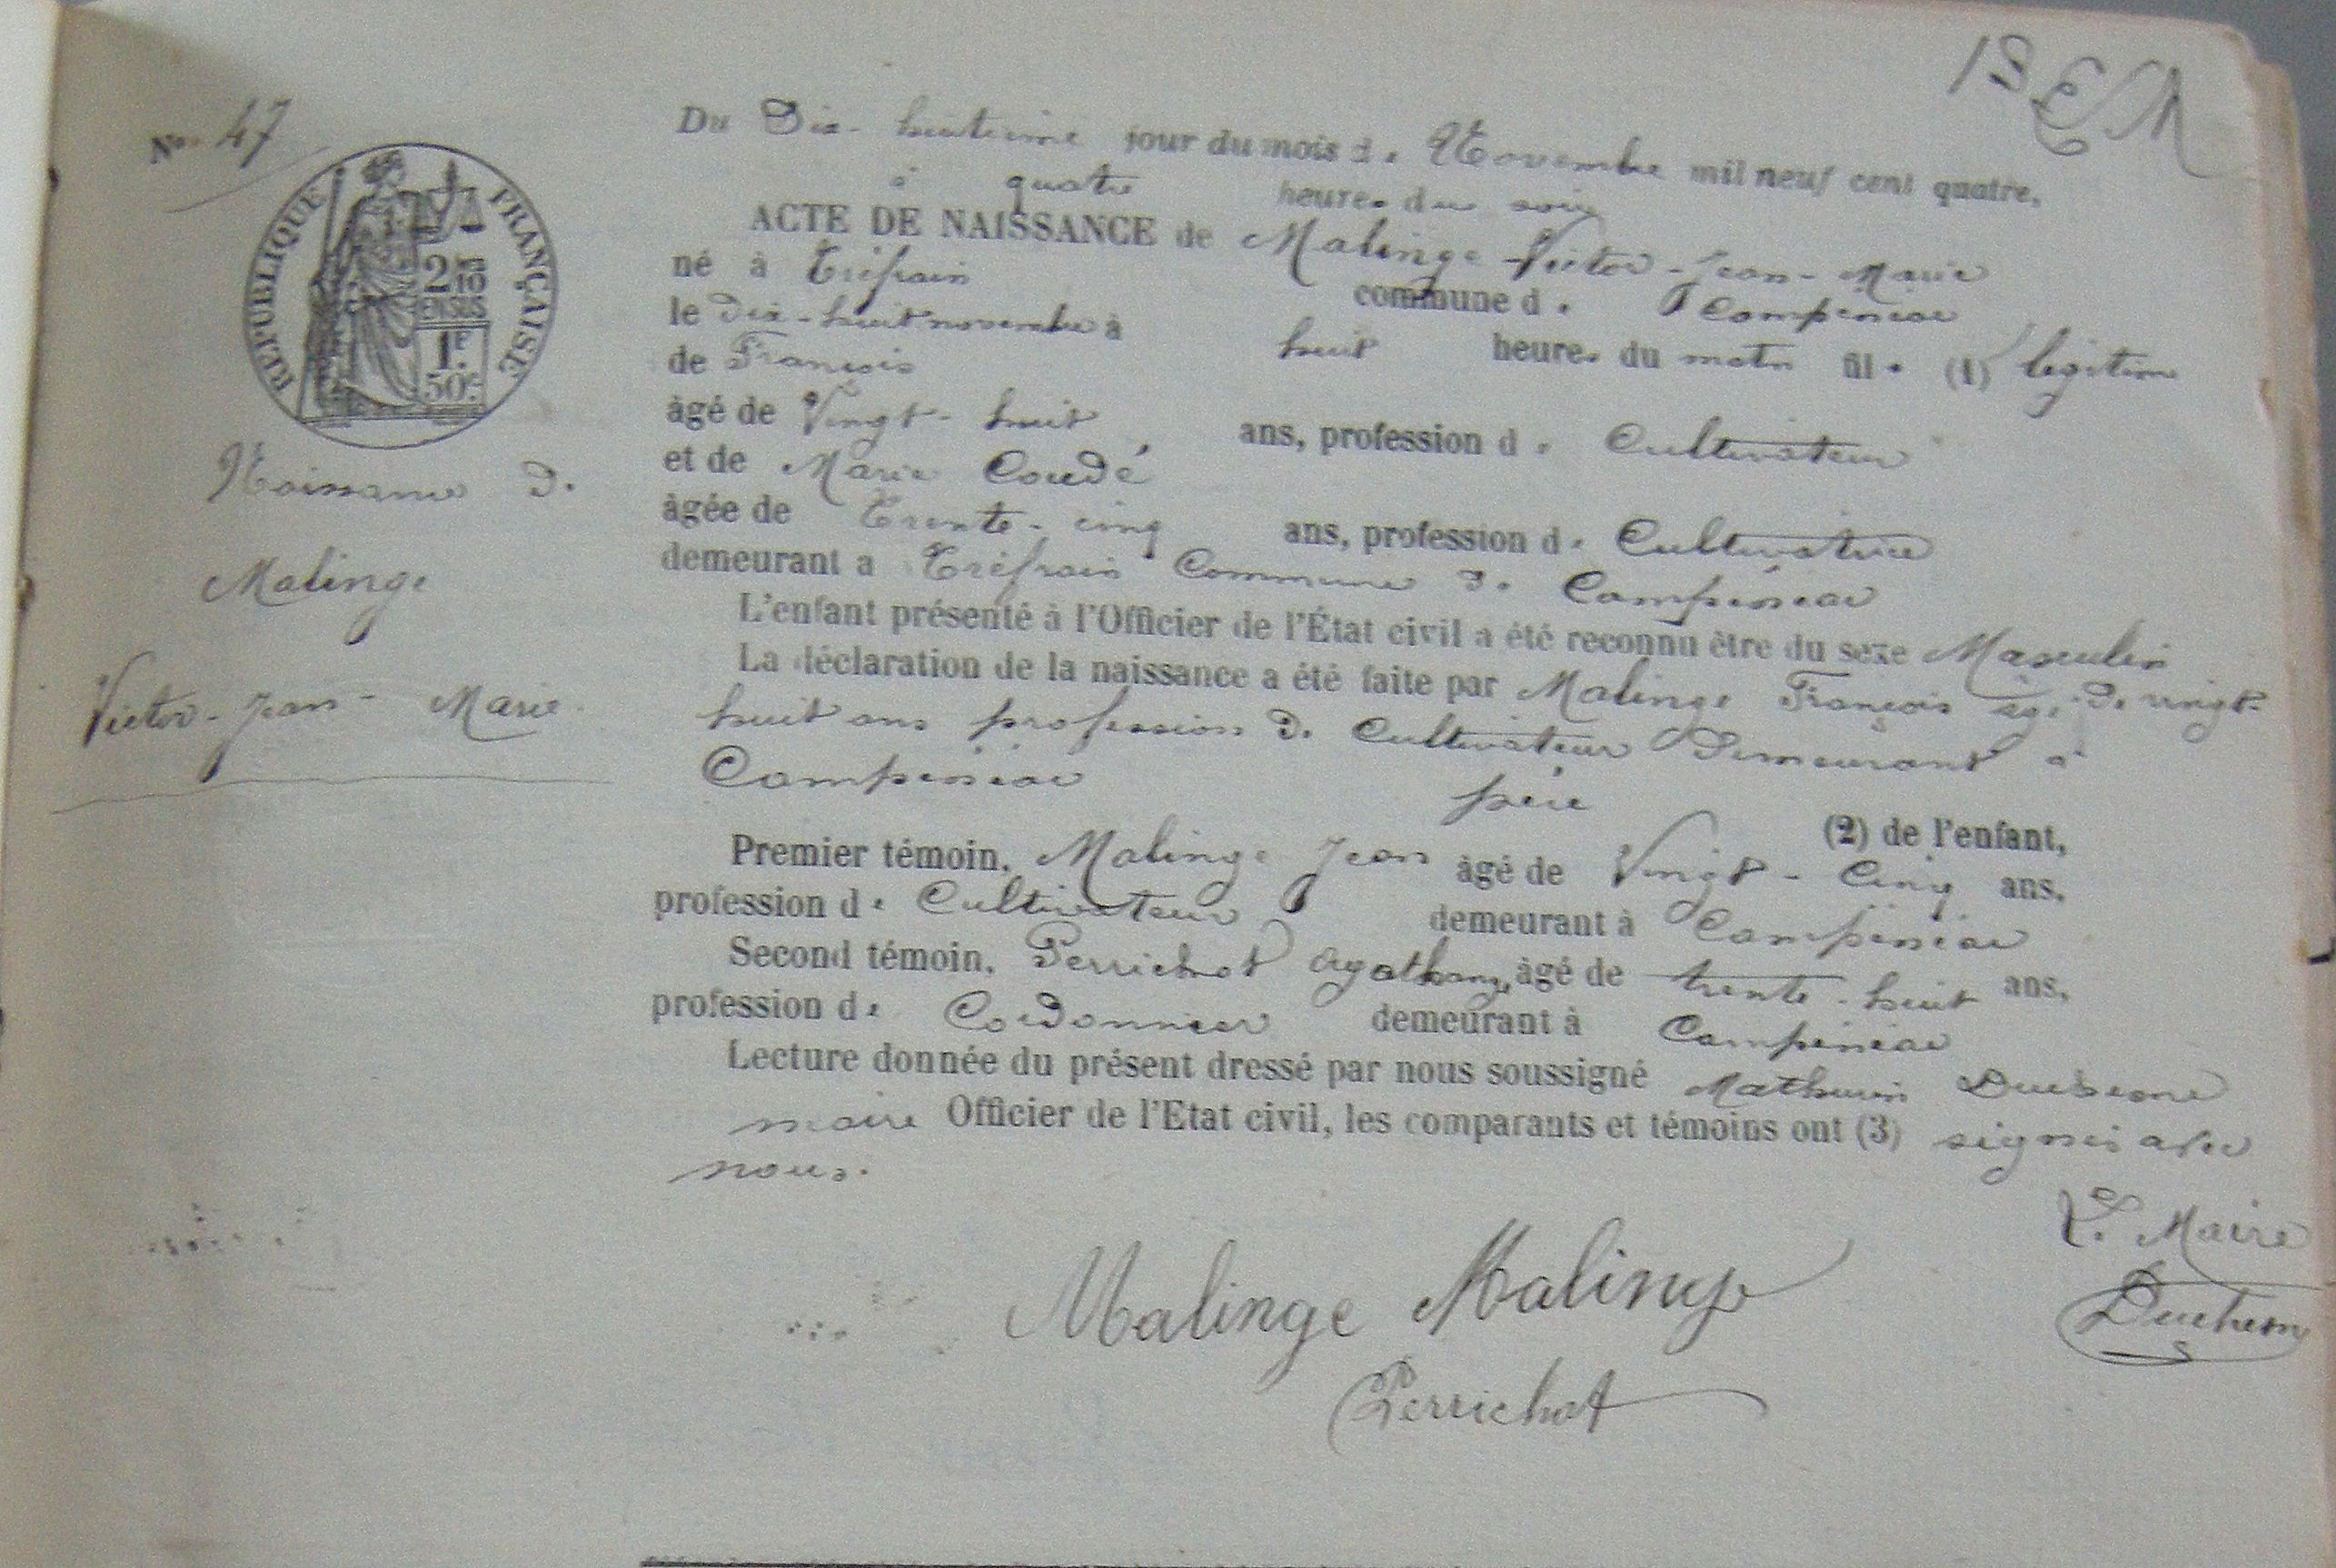 No. 47
RÉPUBLIQUE FRANÇAISE
2/10
EN SUS
1F.
50c.
Naissance de
Malinge
Victor-Jean-Marie
Du Dix-huitième jour du mois de Novembre mil neuf cent quatre,
à quatre heures du soir
ACTE DE NAISSANCE de Malinge Victor-Jean-Marie
né à Tréfrain commune de Campénéac
le dix-huit novembre à huit heures du matin fils (1) légitime
de François
âgé de Vingt-huit ans, profession de Cultivateur
et de Marie Coudé
âgée de Trente-cinq ans, profession de Cultivatrice
demeurant à Tréfrain Commune de Campénéac
L'enfant présenté à l'Officier de l'État civil a été reconnu être du sexe Masculin
La déclaration de la naissance a été faite par Malinge François âgé de vingt-
huit ans profession de Cultivateur Demeurant à
Campénéac père (2) de l'enfant,
Premier témoin, Malinge Jean âgé de Vingt-Cinq ans,
profession de Cultivateur demeurant à Campénéac
Second témoin, Perrichot Agathange âgé de trente-huit ans,
profession de Cordonnier demeurant à Campénéac
Lecture donnée du présent dressé par nous soussigné Mathurin Duchesne
maire Officier de l'Etat civil, les comparants et témoins ont (3) signés avec
nous.
Le Maire
Malinge Malinge
Duchesne
Perrichot